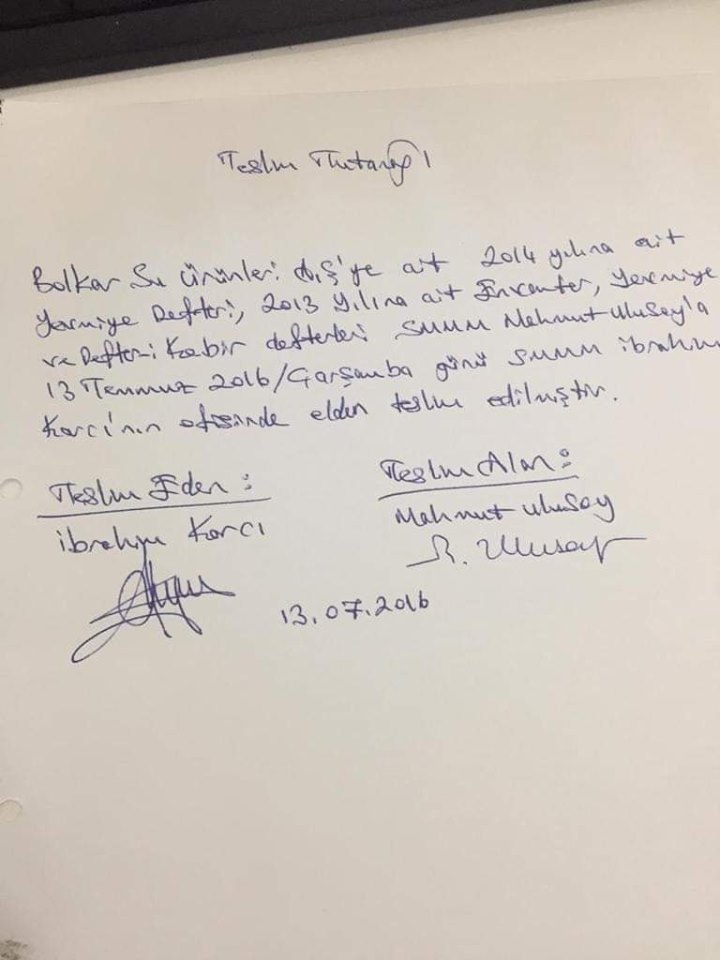 Teslim Tutanağı
Bolkar Su Ürünleri A.Ş'ye ait 2014 yılına ait
Yevmiye Defteri, 2013 yılına ait Envanter, Yevmiye
ve Defteri Kebir defterleri SMMM Mahmut Ulusoy'a
13 Temmuz 2016/Çarşamba günü SMMM İbrahim
Karcı'nın ofisinde elden teslim edilmiştir.
Teslim Eden :
Teslim Alan :
İbrahim Karcı
Mahmut Ulusoy
Ulusoy
13.07.2016